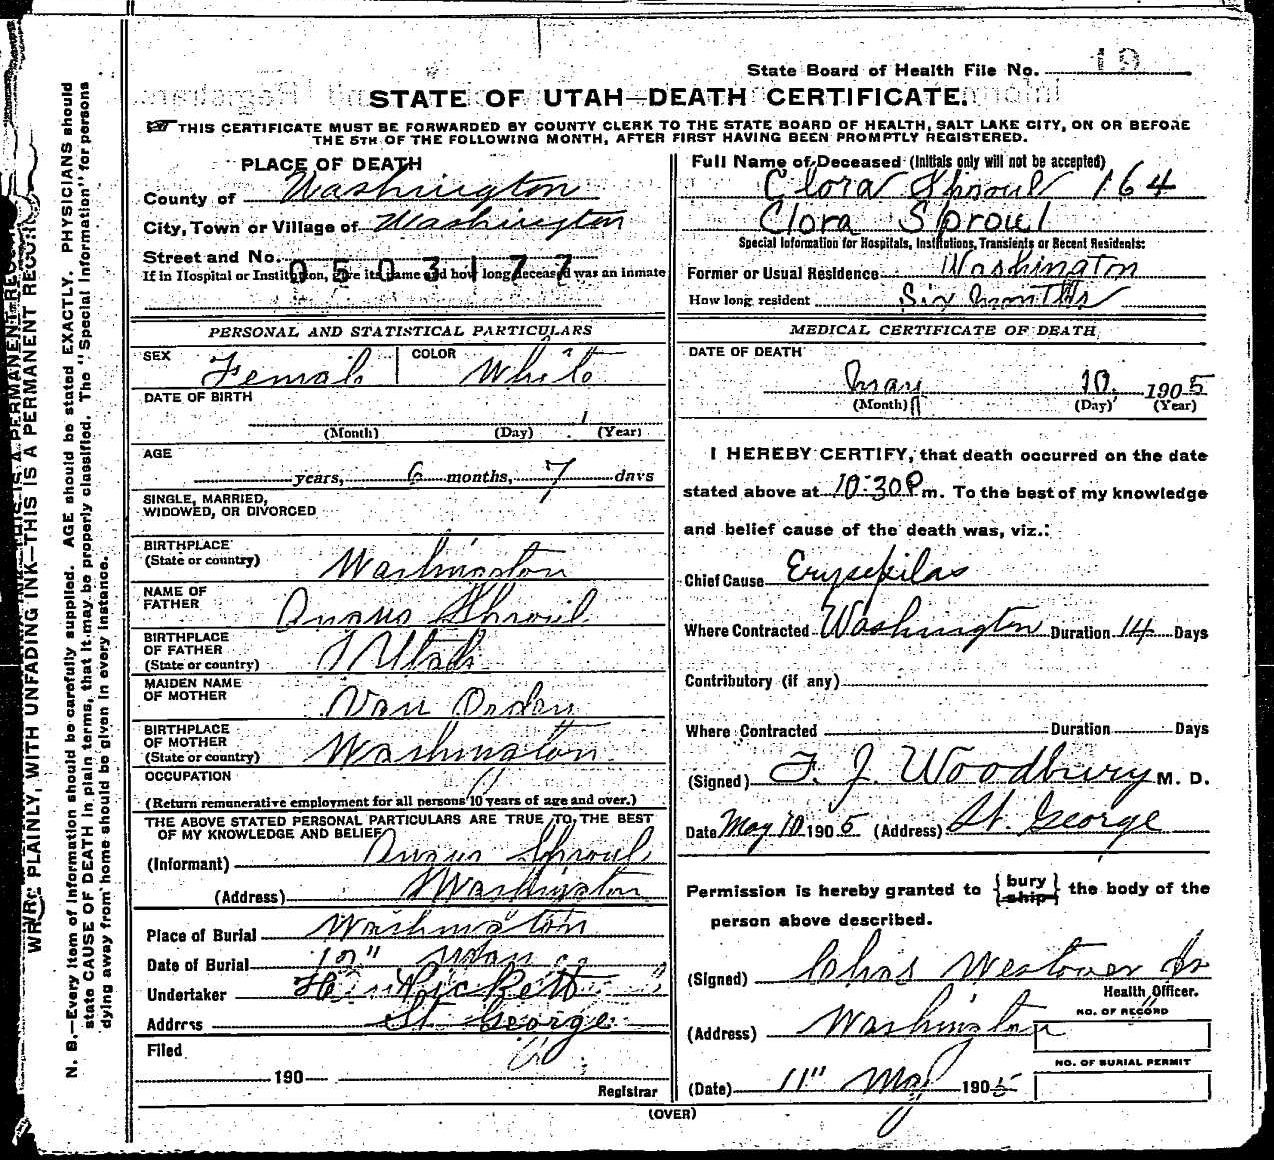 State Board of Health File No. 19
STATE OF UTAH—DEATH CERTIFICATE.
THIS CERTIFICATE MUST BE FORWARDED BY COUNTY CLERK TO THE STATE BOARD OF HEALTH, SALT LAKE CITY, ON OR BEFORE
THE 5TH OF THE FOLLOWING MONTH, AFTER FIRST HAVING BEEN PROMPTLY REGISTERED.
PLACE OF DEATH
County of Washington
City, Town or Village of Washington
Street and No.
0503177
If in Hospital or Institution, give its name and how long deceased was an inmate
PERSONAL AND STATISTICAL PARTICULARS
SEX Female COLOR White
DATE OF BIRTH
(Month) (Day) (Year)
AGE
years, 6 months, 7 days
SINGLE, MARRIED,
WIDOWED, OR DIVORCED
BIRTHPLACE
(State or country) Washington
NAME OF
FATHER Angus Sproul
BIRTHPLACE
OF FATHER
(State or country) Utah
MAIDEN NAME
OF MOTHER Van Orden
BIRTHPLACE
OF MOTHER
(State or country) Washington
OCCUPATION
(Return remunerative employment for all persons 10 years of age and over.)
THE ABOVE STATED PERSONAL PARTICULARS ARE TRUE TO THE BEST
OF MY KNOWLEDGE AND BELIEF
(Informant) Angus Sproul
(Address) Washington
Place of Burial Washington
Date of Burial
Undertaker Pickett
Address St George
Filed
190
Registrar
Full Name of Deceased (Initials only will not be accepted)
Clora Sproul 164
Clora Sproul
Special Information for Hospitals, Institutions, Transients or Recent Residents:
Former or Usual Residence Washington
How long resident Six Months
MEDICAL CERTIFICATE OF DEATH
DATE OF DEATH
May 10, 1905
(Month) (Day) (Year)
I HEREBY CERTIFY, that death occurred on the date
stated above at 10:30 P m. To the best of my knowledge
and belief cause of the death was, viz.:
Chief Cause Erysepilas
Where Contracted Washington Duration 14 Days
Contributory (if any)
Where Contracted Duration Days
(Signed) F. J. Woodbury M. D.
Date May 10 1905 (Address) St. George
Permission is hereby granted to {bury
ship} the body of the
person above described.
(Signed) Chas Westover Jr
Health Officer.
(Address) Washington
NO. OF RECORD
NO. OF BURIAL PERMIT
(Date) 11" May 1905
(OVER)
WRITE PLAINLY, WITH UNFADING INK—THIS IS A PERMANENT RECORD
N. B.—Every item of information should be carefully supplied. AGE should be stated EXACTLY. PHYSICIANS should
state CAUSE OF DEATH in plain terms, that it may be properly classified. The "Special Information" for persons
dying away from home should be given in every instance.